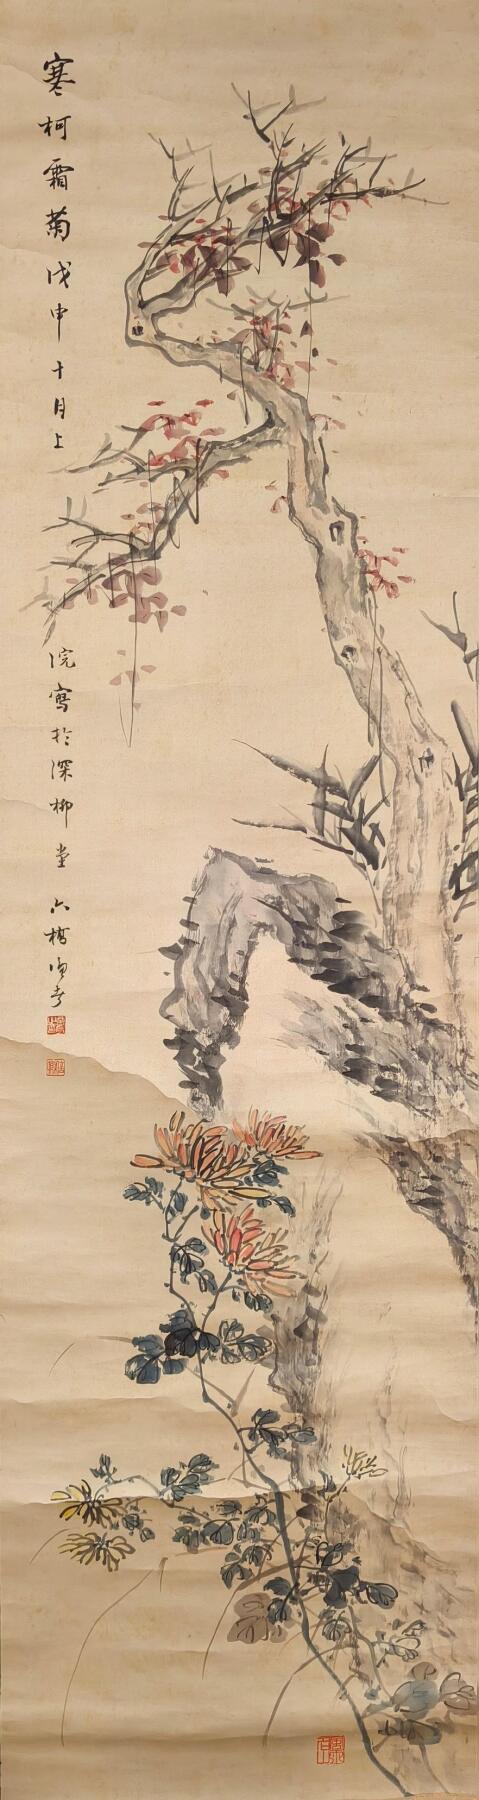 寒柯霜菊戊申十月上
浣寫於深柳堂
六橋